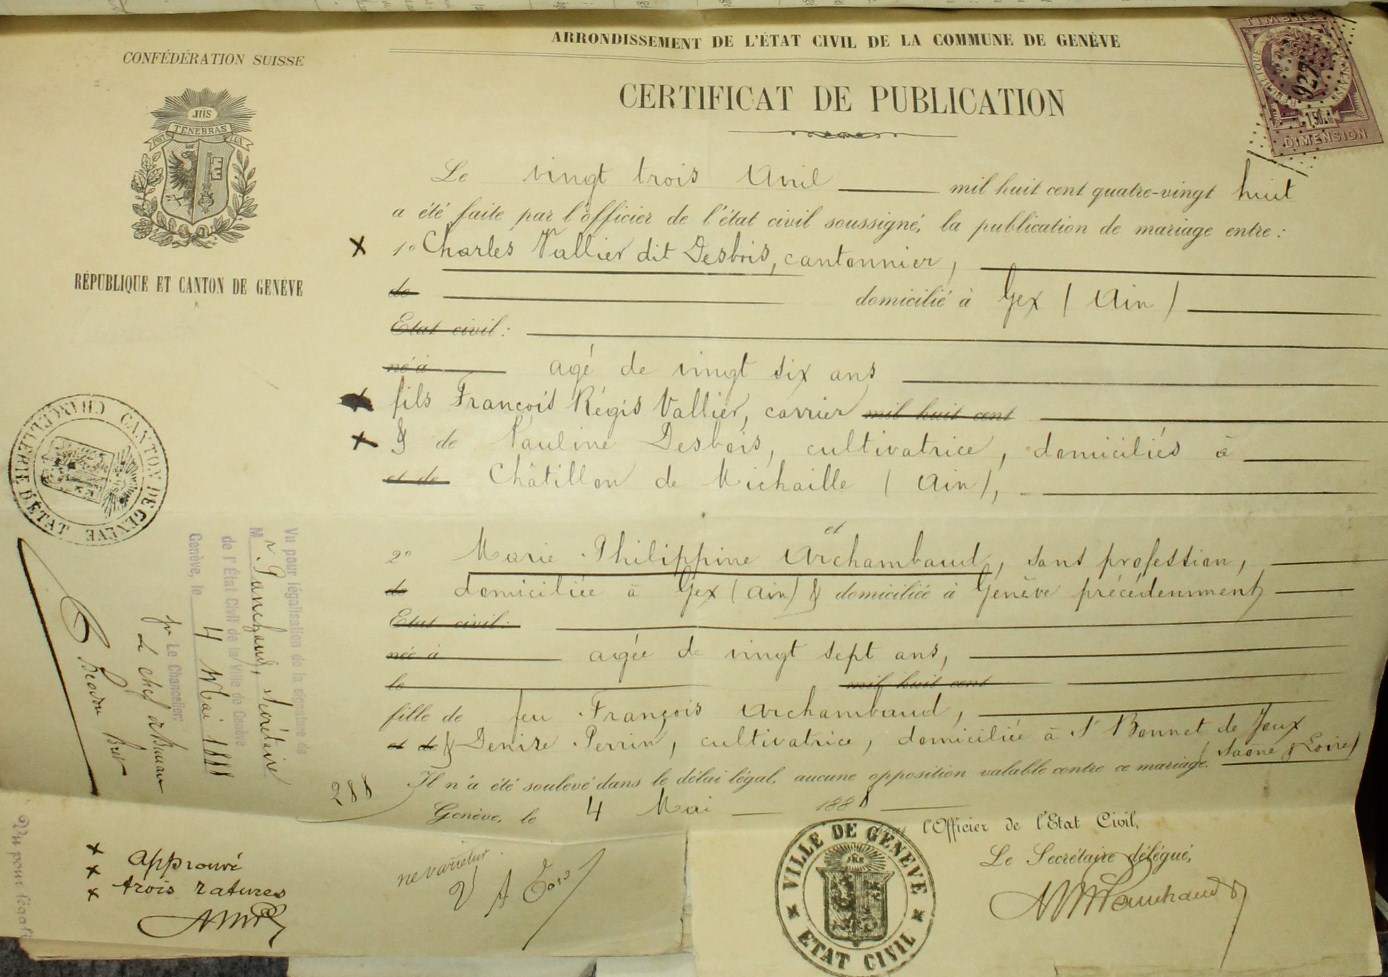 ARRONDISSEMENT DE L'ÉTAT CIVIL DE LA COMMUNE DE GENÈVE
CONFÉDÉRATION SUISSE
TIMBRE
927
DIMENSION
CERTIFICAT DE PUBLICATION
JHS
POST TENEBRAS LUX
RÉPUBLIQUE ET CANTON DE GENÈVE
Le vingt trois Avril mil huit cent quatre-vingt huit
a été faite par l'officier de l'état civil soussigné, la publication de mariage entre:
x 1o Charles Vallier dit Desbois, cantonnier,
de domicilié à Gex (Ain)
Etat civil:
né à agé de vingt six ans
x fils François Régis Vallier, carrier mil huit cent
x & de Pauline Desbois, cultivatrice, domiciliés à
et de Châtillon de Michaille (Ain),
et
2o Marie Philippine Archambaud, sans profession,
de domiciliée à Gex (Ain) & domiciliée à Genève précédemment
Etat civil:
née à agée de vingt sept ans,
le mil huit cent
fille de feu François Archambaud,
et de & Denise Perrin, cultivatrice, domiciliée à St Bonnet de Joux
(Saône & Loire)
Il n'a été soulevé dans le délai légal, aucune opposition valable contre ce mariage.
Genève, le 4 Mai 1888
l'Officier de l'Etat Civil,
Le Secrétaire délégué,
VILLE DE GENÈVE
ETAT CIVIL
CANTON DE GENÈVE
CHANCELLERIE D'ÉTAT
Vu pour légalisation de la signature de
M r Panchaud, secrétaire
de l'État Civil de la Ville de Genève
Genève, le 4 Mai 1888
pr Le Chancelier:
Le chef de Bureau
288
x approuvé
x trois ratures
x
ne varietur
Vu pour légali